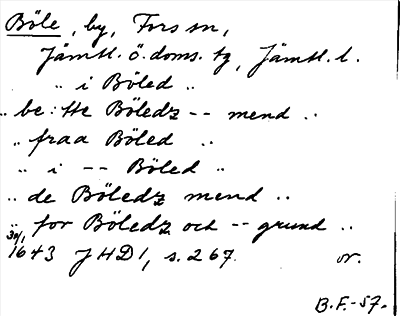 Böle, by, Fors sn,
Jämtl. ö. doms. tg, Jämtl. l.
„ i Böled „
„ be:tte Böledz -- mend „
„ fraa Böled „
„ i -- Böled „
„ de Böledz mend „
„ for Böledz och -- grund „
30/1 1643 JHD1, s. 267. or.
B.F.-57.